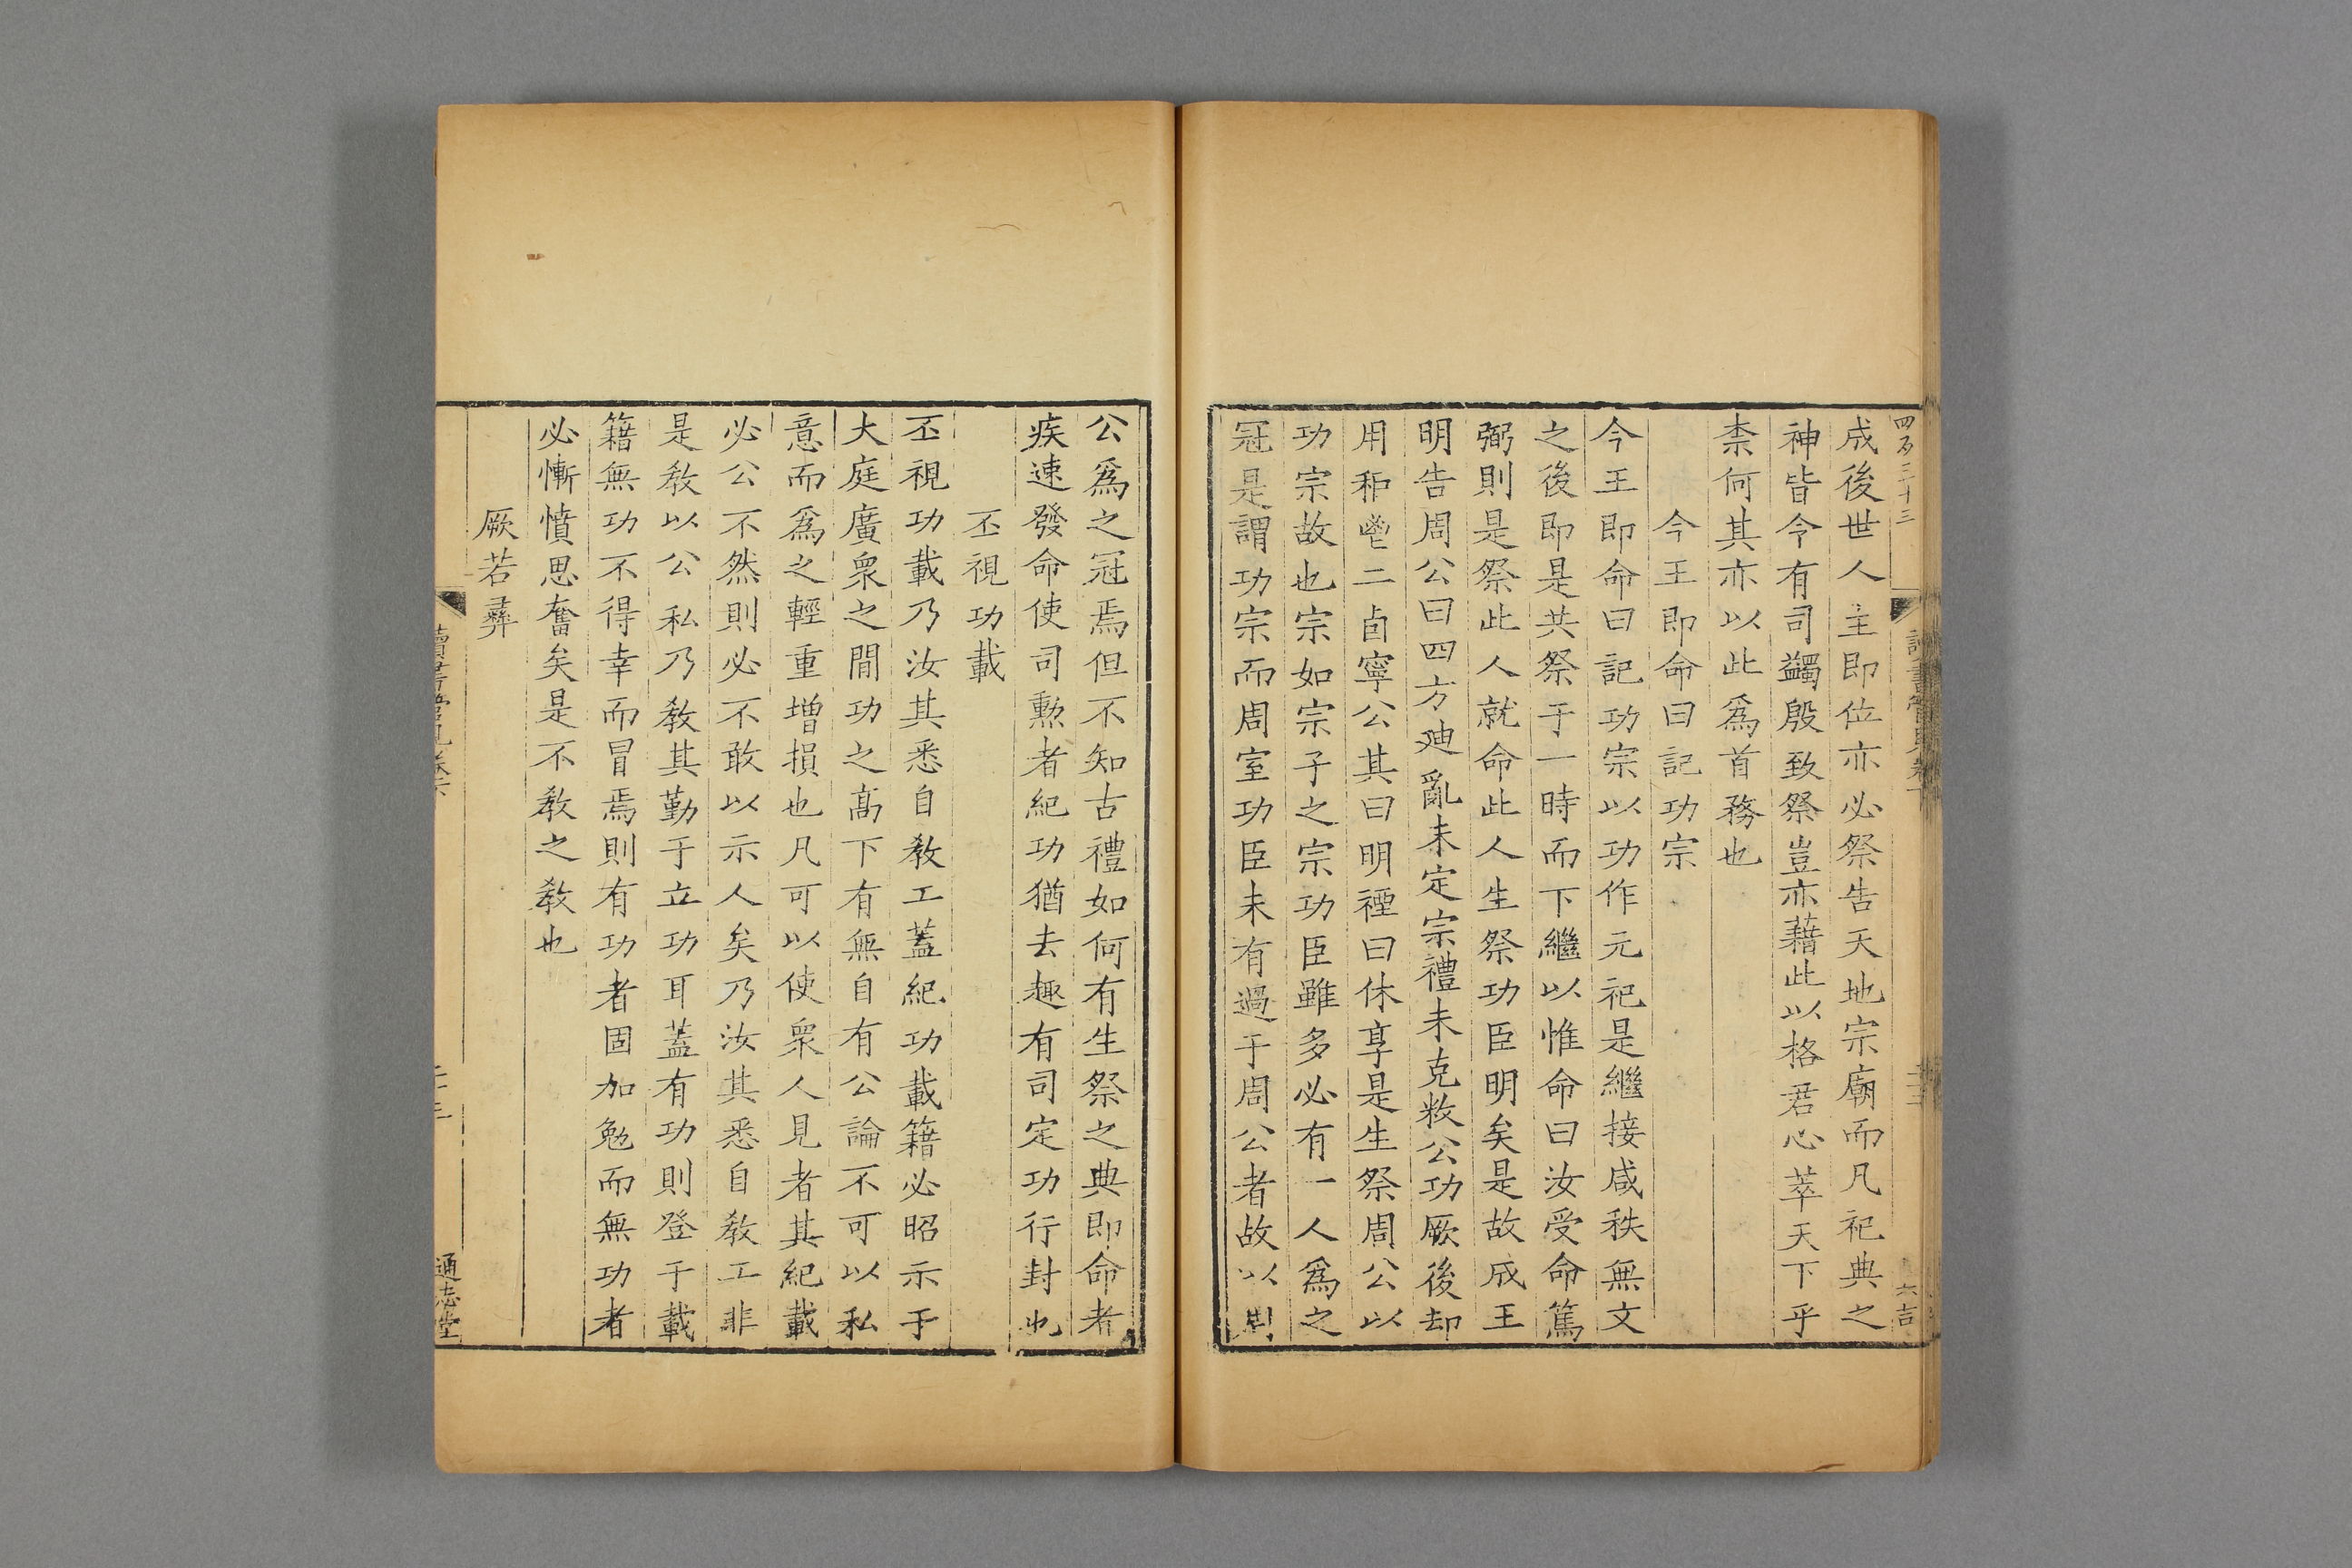 四百三十三
成後世人主即位亦必祭告天地宗廟而凡祀典之
神皆令有司蠲殷致祭豈亦藉此以格君心萃天下乎
柰何其亦以此爲首務也
今王即命曰記功宗
今王即命曰記功宗以功作元祀是繼接咸秩無文
之後即是共祭于一時而下繼以惟命曰汝受命篤
弼則是祭此人就命此人生祭功臣明矣是故成王
明告周公曰四方迪亂未定宗禮未克敉公功厥後却
用秬鬯二卣寧公其曰明禋曰休享是生祭周公以
功宗故也宗如宗子之宗功臣雖多必有一人爲之
冠是謂功宗而周室功臣未有過于周公者故以周
公爲之冠焉但不知古禮如何有生祭之典即命者
疾速發命使司勲者紀功猶去趣有司定功行封也
丕視功載
丕視功載乃汝其悉自敎工蓋紀功載籍必昭示于
大庭廣衆之間功之高下有無自有公論不可以私
意而爲之輕重增損也凡可以使衆人見者其紀載
必公不然則必不敢以示人矣乃汝其悉自敎工非
是敎以公私乃敎其勤于立功耳蓋有功則登于載
籍無功不得幸而冒焉則有功者固加勉而無功者
必慚憤思奮矣是不敎之敎也
厥若彝
讀書管見卷下
通志堂